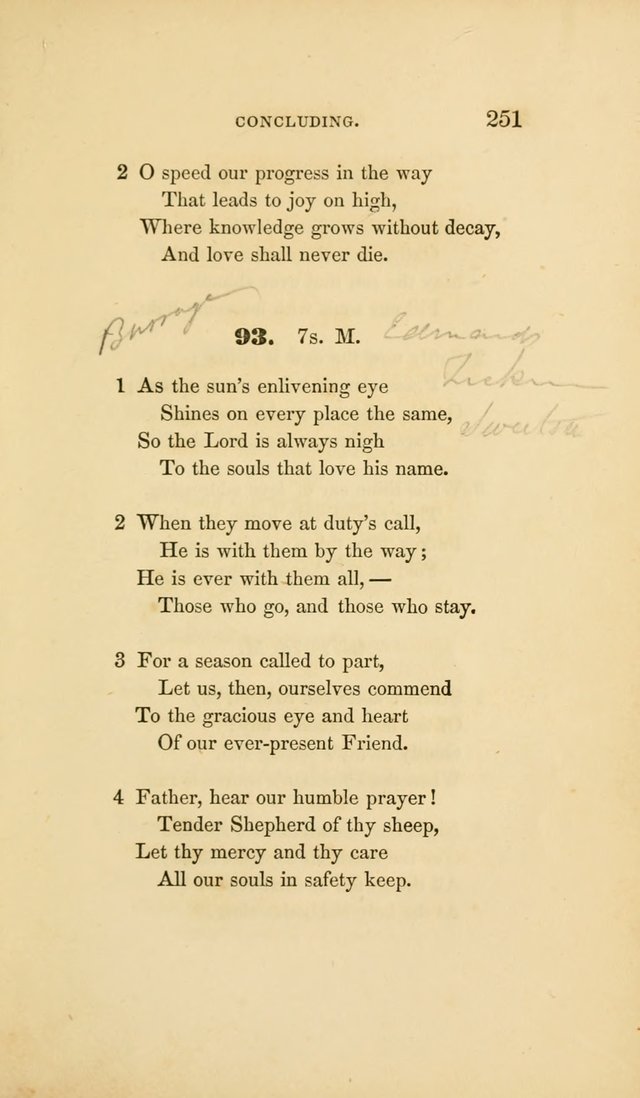 CONCLUDING. 251
2 O speed our progress in the way
That leads to joy on high,
Where knowledge grows without decay,
And love shall never die.
Burrage
93. 7s. M. Edmands
1 As the sun's enlivening eye
Shines on every place the same,
So the Lord is always nigh
To the souls that love his name.
2 When they move at duty's call,
He is with them by the way;
He is ever with them all, —
Those who go, and those who stay.
3 For a season called to part,
Let us, then, ourselves commend
To the gracious eye and heart
Of our ever-present Friend.
4 Father, hear our humble prayer!
Tender Shepherd of thy sheep,
Let thy mercy and thy care
All our souls in safety keep.